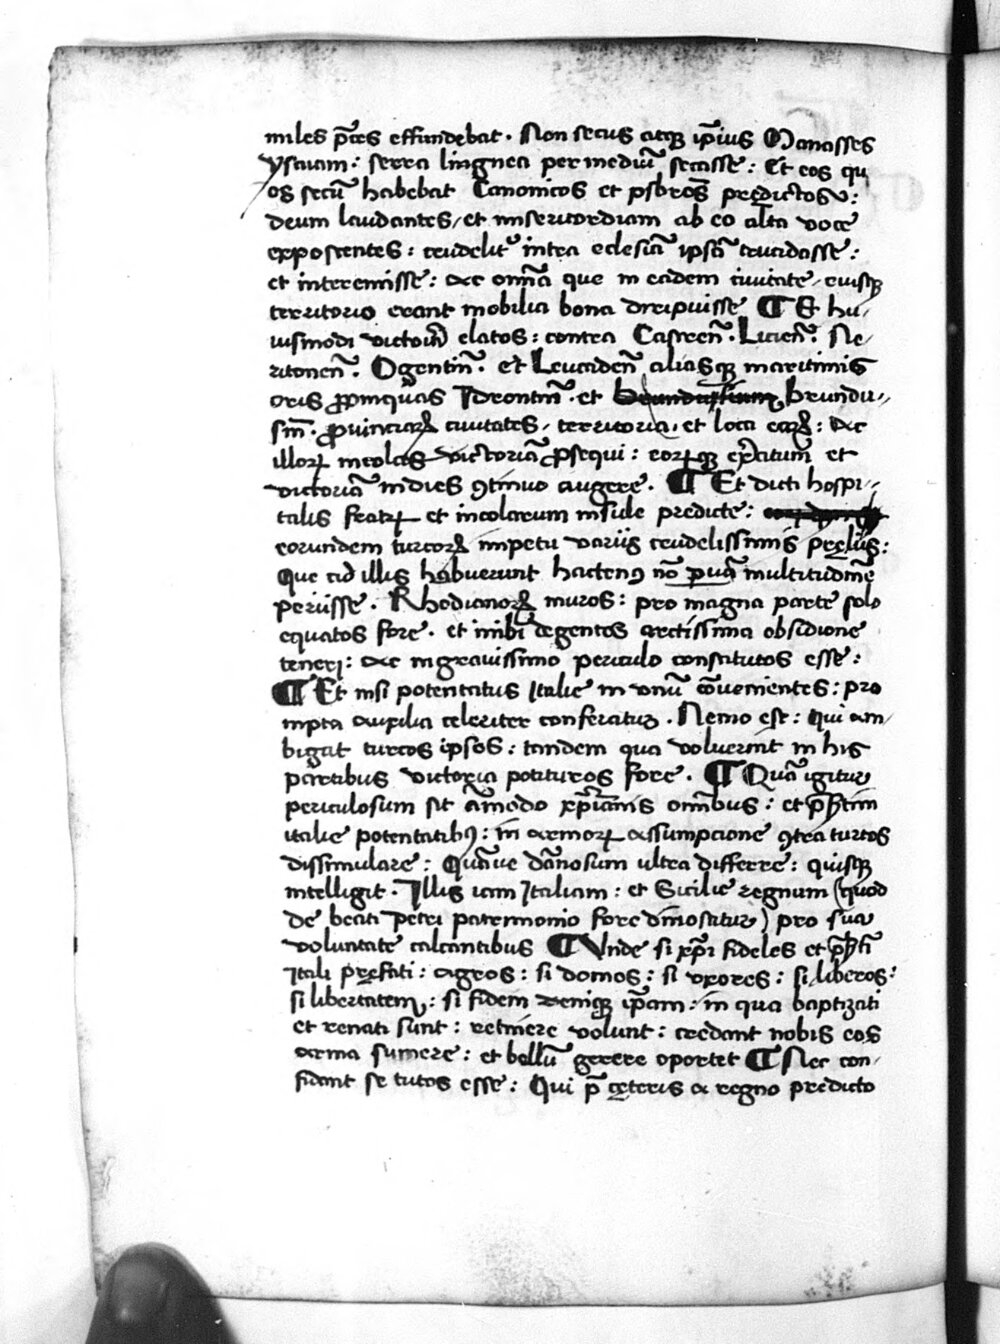 miles p̄ces effundebat. Non secus atq̨ ip̄ius Manasses
ysaiam: serra lingnea per mediū secasse: Et eos qu
os secū habebat Canonicos et p̄sbr̄os predictos:
deum laudantes, et misericordiam ab eo alta voce
exposcentes: crudelit̄ intra eclesiā ip̄sā trucidasse:
et interemisse: ac om̄ia que in eadem civitate, eiusq̨
territorio erant mobilia bona diripuisse ¶ Et hu,
iusmodi victoria elatos: contra Castren̄. Licien̄. Ne,
ritonen̄. Ogentin̄. et Leucaden̄ aliasq̨ maritimis
oris p̄pinquas Idrontin̄. et brundu,
sin̄. p̄vinciaꝝ civitates, territoria, et loca eaꝝ: ac
illoꝝ incolas victoriā p̄sequi: eoꝝq̨ exercitum et
victoriā indies ꝯtinuo augere. ¶ Et dicti hospi,
talis fratꝝ et incolarum insule predicte:
eorundem turcoꝝ impetu variis crudelissimis preliis:
Que cū illis habuerunt hactenꝰ nō parvā multitudinē
periisse. Rhodianoꝝ muros: pro magna parte solo
equatos fore. et inibi degentes arctissima obsidione
teneri: ac in gravissimo periculo constitutos esse:
¶ Et nisi potentatus Italie in unū ꝯvenientes: pro
mpta auxilia celeriter conferatur. Nemo est: qui am,
bigat turcos ipsos: tandem qua voluerint in his
partibus victoria potituros fore. ¶ Quā igitur
periculosum sit āmodo xp̄ianis omnibus: et p̄sertim
italie potentatibꝰ: in armoꝝ assumpcione ꝯtra turcos
dissimulare: Quāve dānosum ultra differre: quisq̨
intelligit. Illis iam Italiam: et Sicilie regnum (quod
de beati Petri patrimonio fore dinoscitur) pro sua
voluntate calcantibus ¶ Unde si xp̄i fideles et p̄sertī
Itali prefati: agros: si domos: si uxores: si liberos:
si libertatem: si fidem deniq̨ ip̄am: in qua baptizati
et renati sunt: retinere volunt: credant nobis eos
arma sumere: et bellū gerere oportet ¶ Nec con,
fidant se tutos esse: Qui p̄ ceteris a regno predicto